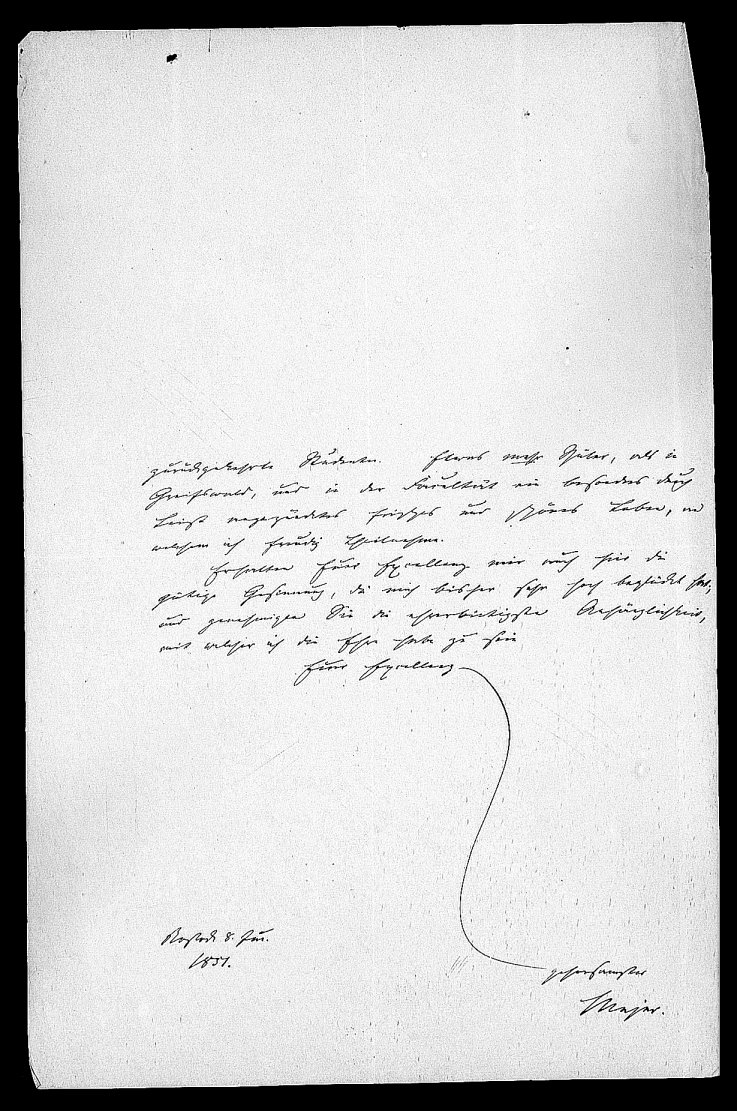 zurückgekehrte Studenten. Etwas mehr Hörer, als in
Greifswald, und in der Facultät ein besonders durch
Leist angezündetes frisches und schönes Leben, an
welchem ich freudig theilnehme.
Erhalten Euer Excellenz mir auch hier die
gütige Gesinnung, die mich bisher sehr hoch beglückt hat,
und genehmigen Sie die ehrerbietigste Anhänglichkeit,
mit welcher ich die Ehre habe zu sein
Euer Excellenz
Rostock 8. Jun.
1851.
gehorsamster
Mejer.